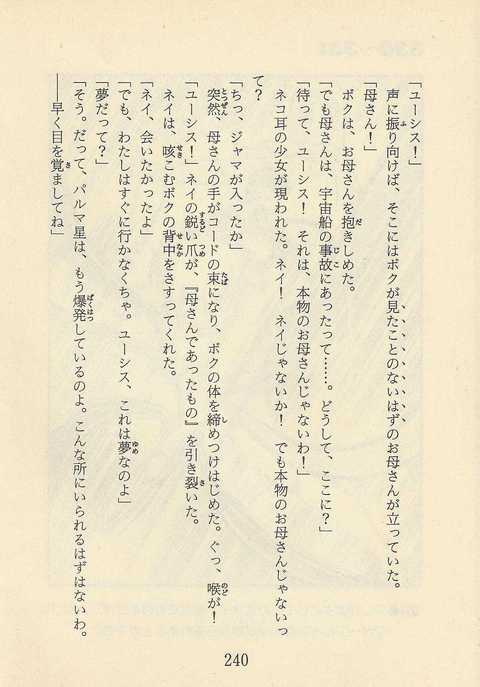 「ユーシス！」
声に振り向けば、そこにはボクが見たことのないはずのお母さんが立っていた。
「母さん！」
ボクは、お母さんを抱きしめた。
「でも母さんは、宇宙船の事故にあったって……。どうして、ここに？」
「待って、ユーシス！　それは、本物のお母さんじゃないわ！」
ネコ耳の少女が現われた。ネイ！　ネイじゃないか！　でも本物のお母さんじゃないっ
て？
「ちっ、ジャマが入ったか」
突然、母さんの手がコードの束になり、ボクの体を締めつけはじめた。ぐっ、喉が！
「ユーシス！」ネイの鋭い爪が、『母さんであったもの』を引き裂いた。
ネイは、咳こむボクの背中をさすってくれた。
「ネイ、会いたかったよ」
「でも、わたしはすぐに行かなくちゃ。ユーシス、これは夢なのよ」
「夢だって？」
「そう。だって、パルマ星は、もう爆発しているのよ。こんな所にいられるはずはないわ。
――早く目を覚ましてね」
240